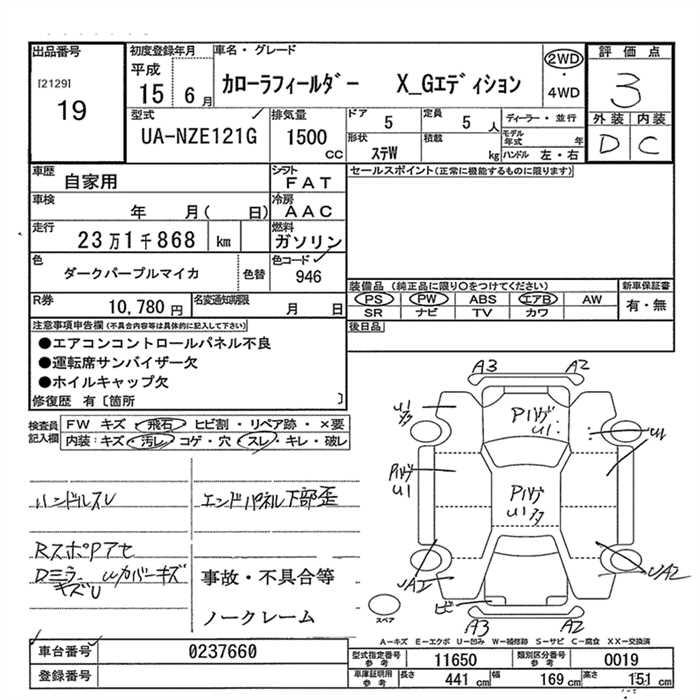 出品番号
[2129]
19
初度登録年月
平成
15 6月
車名・グレード
カローラフィールダー X_Gエディション
2WD
・
4WD
評価点
3
外装 内装
D C
型式
UA-NZE121G
排気量
1500 cc
ドア
5
定員
5 人
形状
ステW
積載
kg
ディーラー・並行
モデル年式 年
ハンドル 左・右
車歴
自家用
シフト
FAT
車検
年 月( 日)
冷房
AAC
走行
23万1千868 km
燃料
ガソリン
色
ダークパープルマイカ
色替
色コード
946
R券
10,780 円
名変通知期限
月 日
セールスポイント(正常に機能するものに限ります)
装備品(純正品に限り〇をつけてください)
PS PW ABS エアB AW
SR ナビ TV カワ
新車保証書
有・無
後日品
注意事項申告欄(不具合内容等は具体的に記入して下さい)
●エアコンコントロールパネル不良
●運転席サンバイザー欠
●ホイルキャップ欠
修復歴 有〔箇所 〕
検査員記入欄
FW キズ・飛石・ヒビ割・リペア跡・×要
内装:キズ・汚レ・コゲ・穴・スレ・キレ・破レ
ハンドルスU
エンドパネル下部歪
RスポPアセ
Dミラー Uカバーキズ
キズU
事故・不具合等
ノークレーム
A3 A2
U1
Pハゲ
U1
U1
Pハゲ
U1
Pハゲ
UA2
ヒビ
A3 A2
スペア
A－キズ E－エクボ U－凹み W－補修跡 S－サビ C－腐食 XX－交換済
車台番号
0237660
登録番号
型式指定番号
参考
11650
類別区分番号
参考
0019
車庫証明用
参考
長さ 441 cm 幅 169 cm 高さ 151 cm